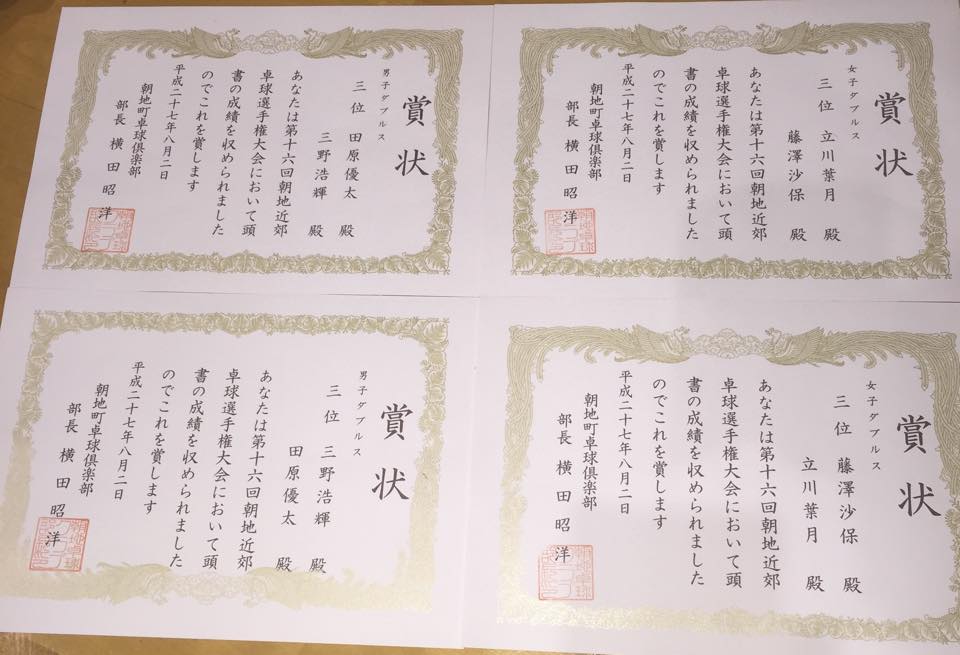 賞状
男子ダブルス
三位 田原優太 殿
三野浩輝 殿
あなたは第十六回朝地近郊
卓球選手権大会において頭
書の成績を収められました
のでこれを賞します
平成二十七年八月二日
朝地町卓球倶楽部
部長 横田昭洋
賞状
女子ダブルス
三位 立川葉月 殿
藤澤沙保 殿
あなたは第十六回朝地近郊
卓球選手権大会において頭
書の成績を収められました
のでこれを賞します
平成二十七年八月二日
朝地町卓球倶楽部
部長 横田昭洋
賞状
男子ダブルス
三位 三野浩輝 殿
田原優太 殿
あなたは第十六回朝地近郊
卓球選手権大会において頭
書の成績を収められました
のでこれを賞します
平成二十七年八月二日
朝地町卓球倶楽部
部長 横田昭洋
賞状
女子ダブルス
三位 藤澤沙保 殿
立川葉月 殿
あなたは第十六回朝地近郊
卓球選手権大会において頭
書の成績を収められました
のでこれを賞します
平成二十七年八月二日
朝地町卓球倶楽部
部長 横田昭洋